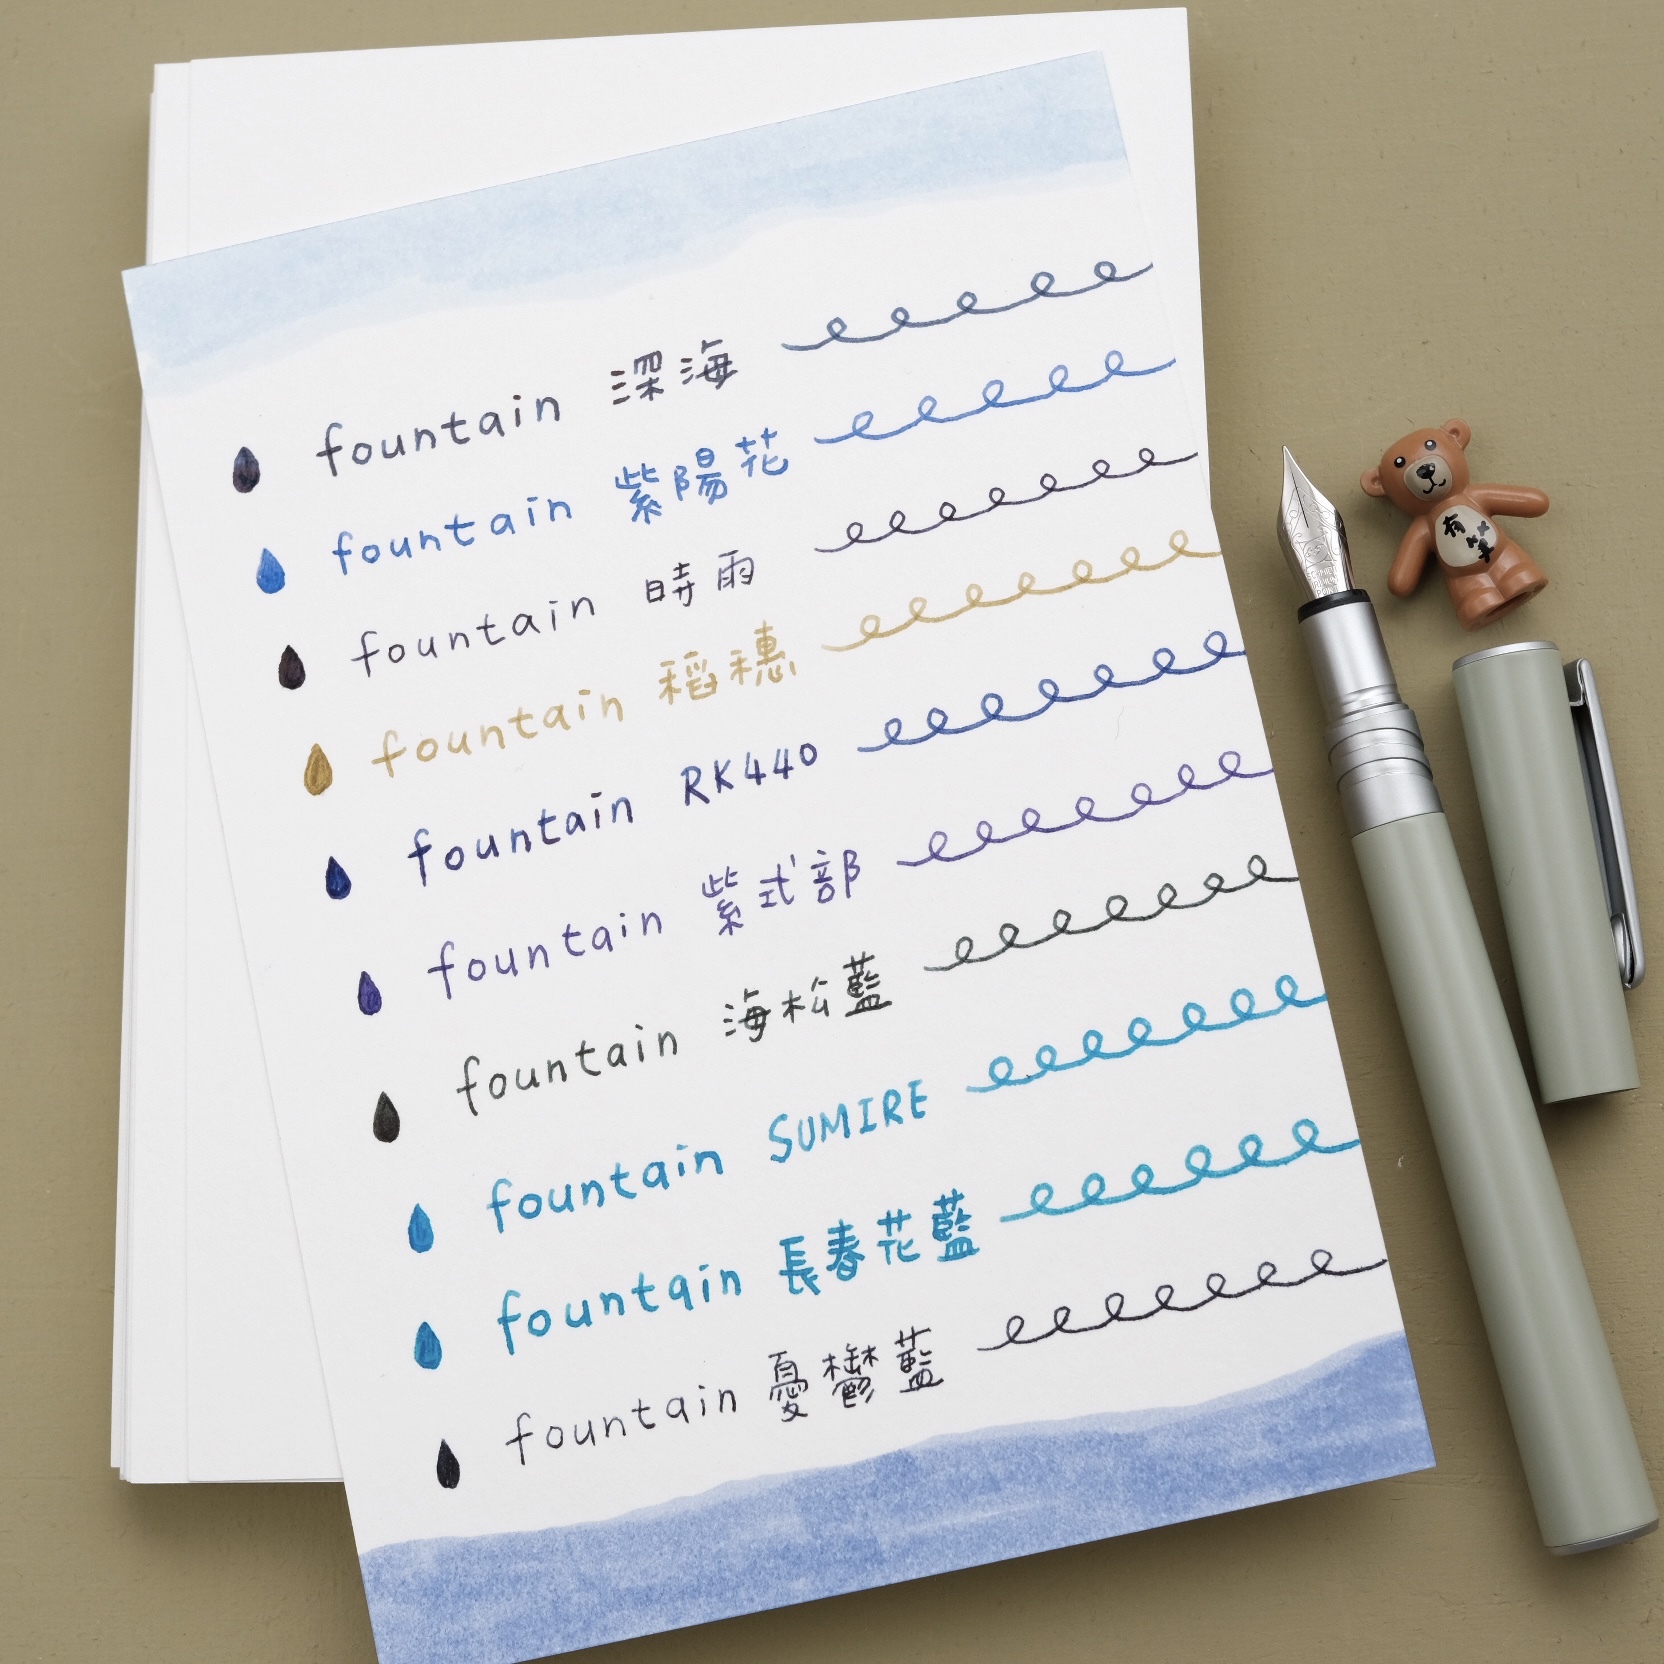 fountain 深海
fountain 紫陽花
fountain 時雨
fountain 稻穗
fountain RK440
fountain 紫式部
fountain 海松藍
fountain SUMIRE
fountain 長春花藍
fountain 憂鬱藍
有
筆